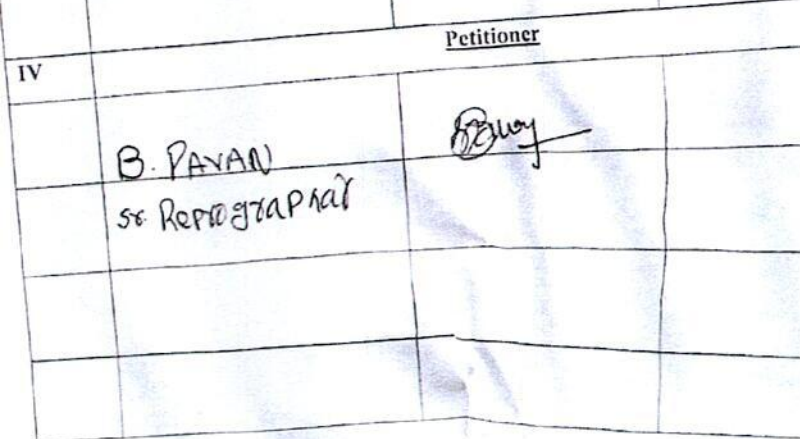 Petitioner
IV
B. PAVAN
sr. Reprographar